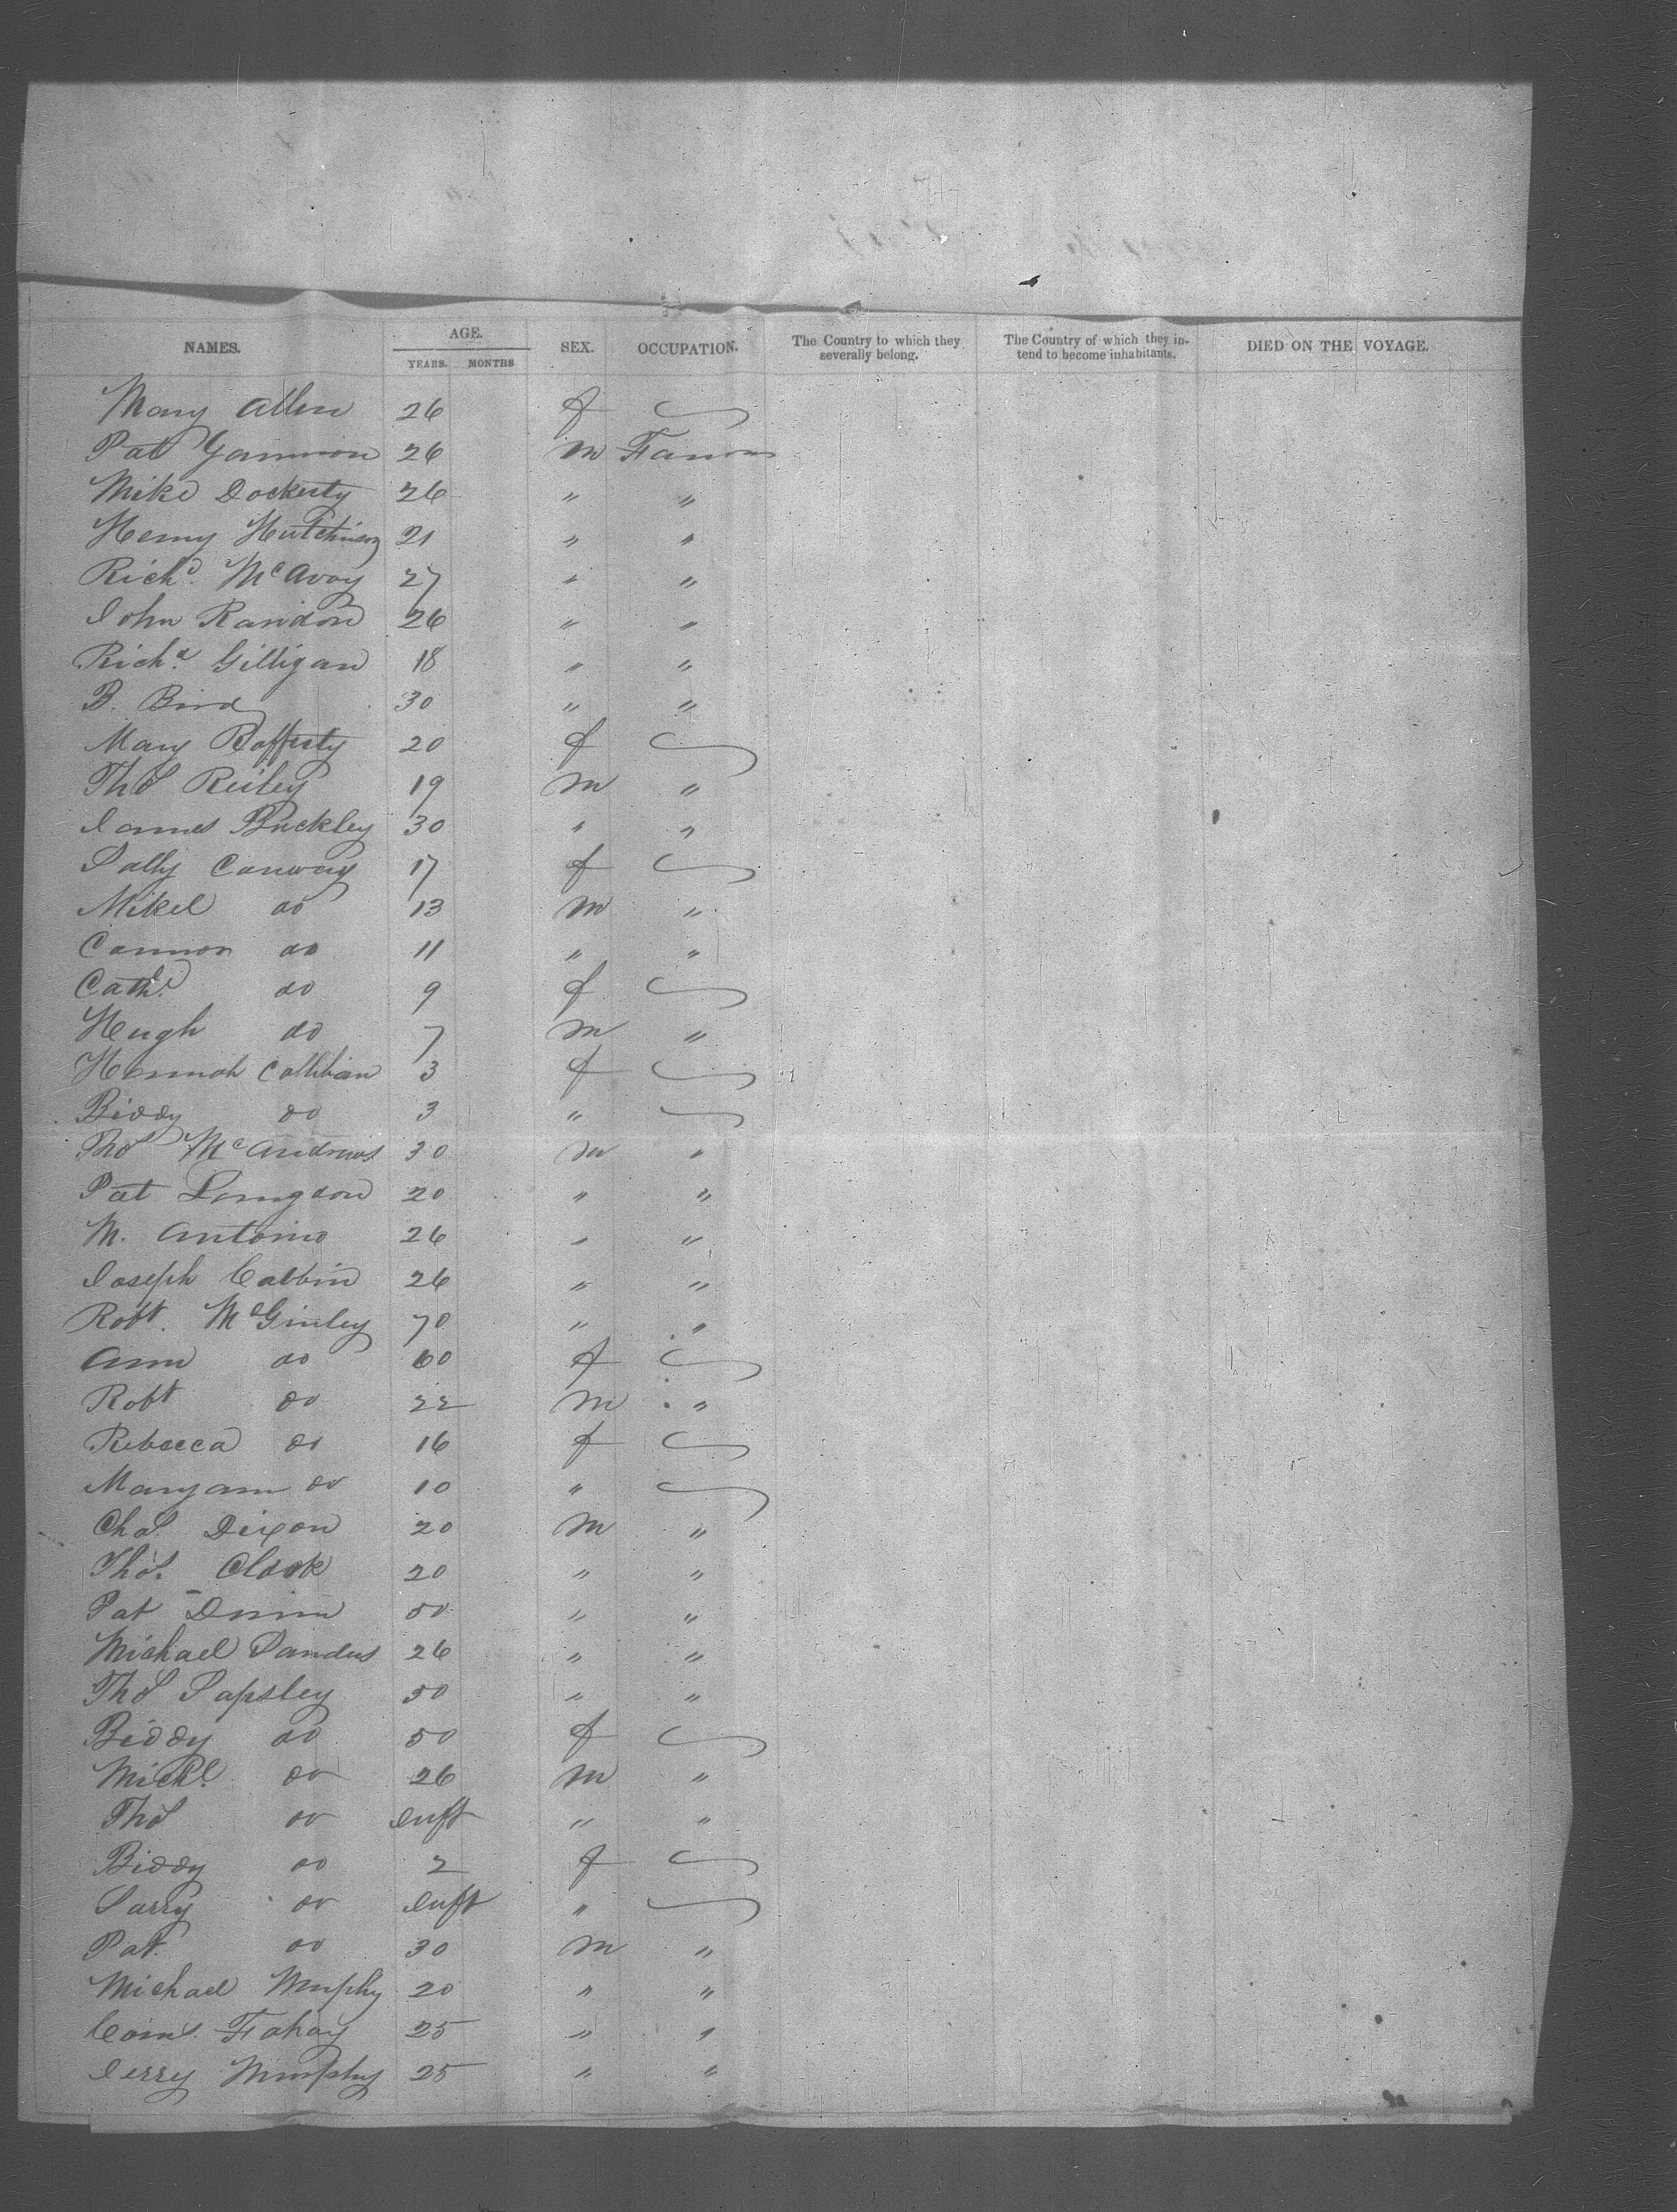 NAMES. AGE. YEARS. MONTHS SEX. OCCUPATION. The Country to which they severally belong. The Country of which they intend to become inhabitants. DIED ON THE VOYAGE.
Mary Allen 26 f
Pat Gannion 26 m Farmer
Mike Dockerty 26 " "
Henry Hutchinson 21 " "
Richd. McAvoy 27 " "
John Randon 26 " "
Richd. Gilligan 18 " "
B. Bird 30 " "
Mary Rafferty 20 f
Thos Reiley 19 m "
James Buckley 30 " "
Sally Conway 17 f
Mikel do 13 m "
Connor do 11 " "
Cathe. do 9 f
Hugh do 7 m "
Hannah Callihan 3 f
Biddy do 3 "
Thos McAndrews 30 m "
Pat Langdon 20 " "
M. Antoine 26 " "
Joseph Cabbin 26 " "
Robt. McGinley 70 " "
Ann do 60 f
Robt do 22 m "
Rebecca do 16 f
Maryann do 10 "
Chas. Dixon 20 m "
Thos. Clark 20 " "
Pat Dunn 50 " "
Michael Sandus 26 " "
Thos Sapsley 50 " "
Biddy do 50 f
Michl. do 26 m "
Thos do Inft " "
Biddy do 2 f
Sarry do Inft "
Pat. do 30 m "
Michael Murphy 20 " "
Corns. Fahay 25 " "
Jerry Murphy 25 " "